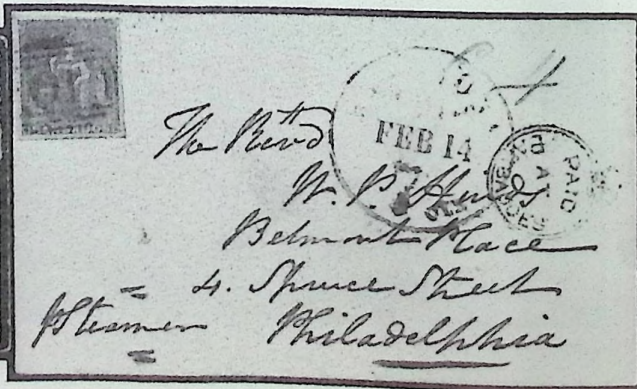 The Revd
W. P. Hinds
Belmont Place
4. Spruce Street
p Steamer Philadelphia
FEB 14
PAID AT BARBADOES